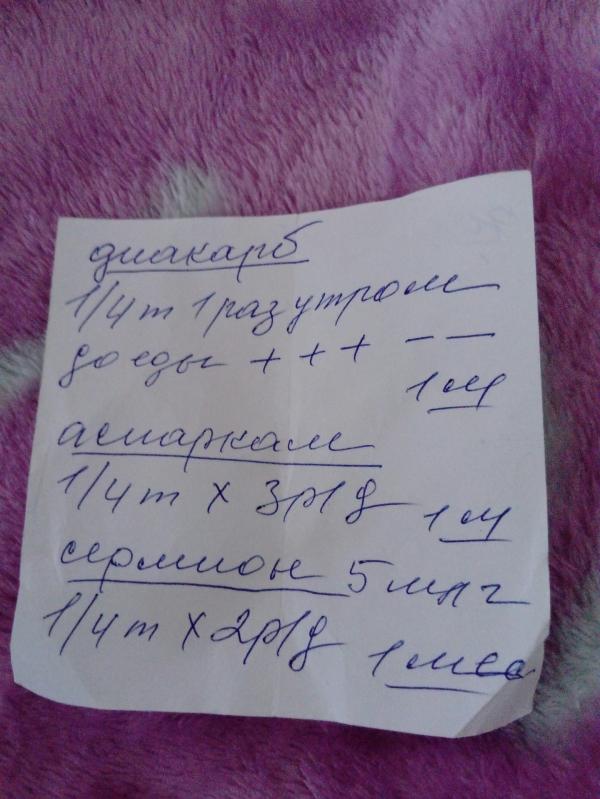 диакарб
1/4 т 1 раз утром
до еды + + + — —
1 м
аспаркам
1/4 т х 3р/д 1 м
сермион 5 мг
1/4 т х 2р/д 1 мес